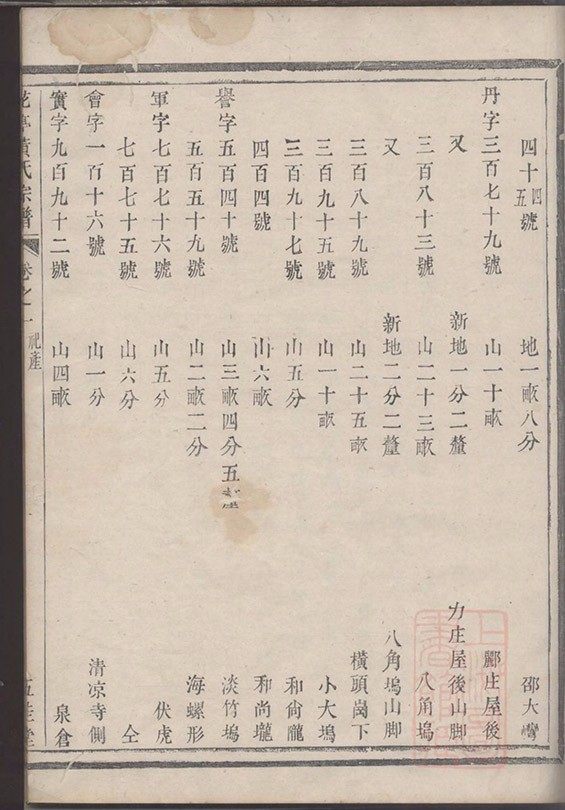 四十四五號 地一畝八分 邵大灣
丹字三百七十九號 山一十畝 郿庄屋後
又 新地一分二釐 力庄屋後山脚
三百八十三號 山二十三畝 八角塢
又 新地二分二釐 八角塢山脚
三百八十九號 山二十五畝 橫頭崗下
三百九十五號 山一十畝 小大塢
三百九十七號 山五分 和尙隴
四百四號 山六畝 和尚壠
譽字五百四十號 山三畝四分五 淡竹塢
五百五十九號 山二畝二分 海螺形
軍字七百七十六號 山五分 伏虎
七百七十五號 山六分 仝
會字一百十六號 山一分 清凉寺側
實字九百九十二號 山四畝 泉倉
花亭黃氏宗譜 卷之一 祀產 五桂堂